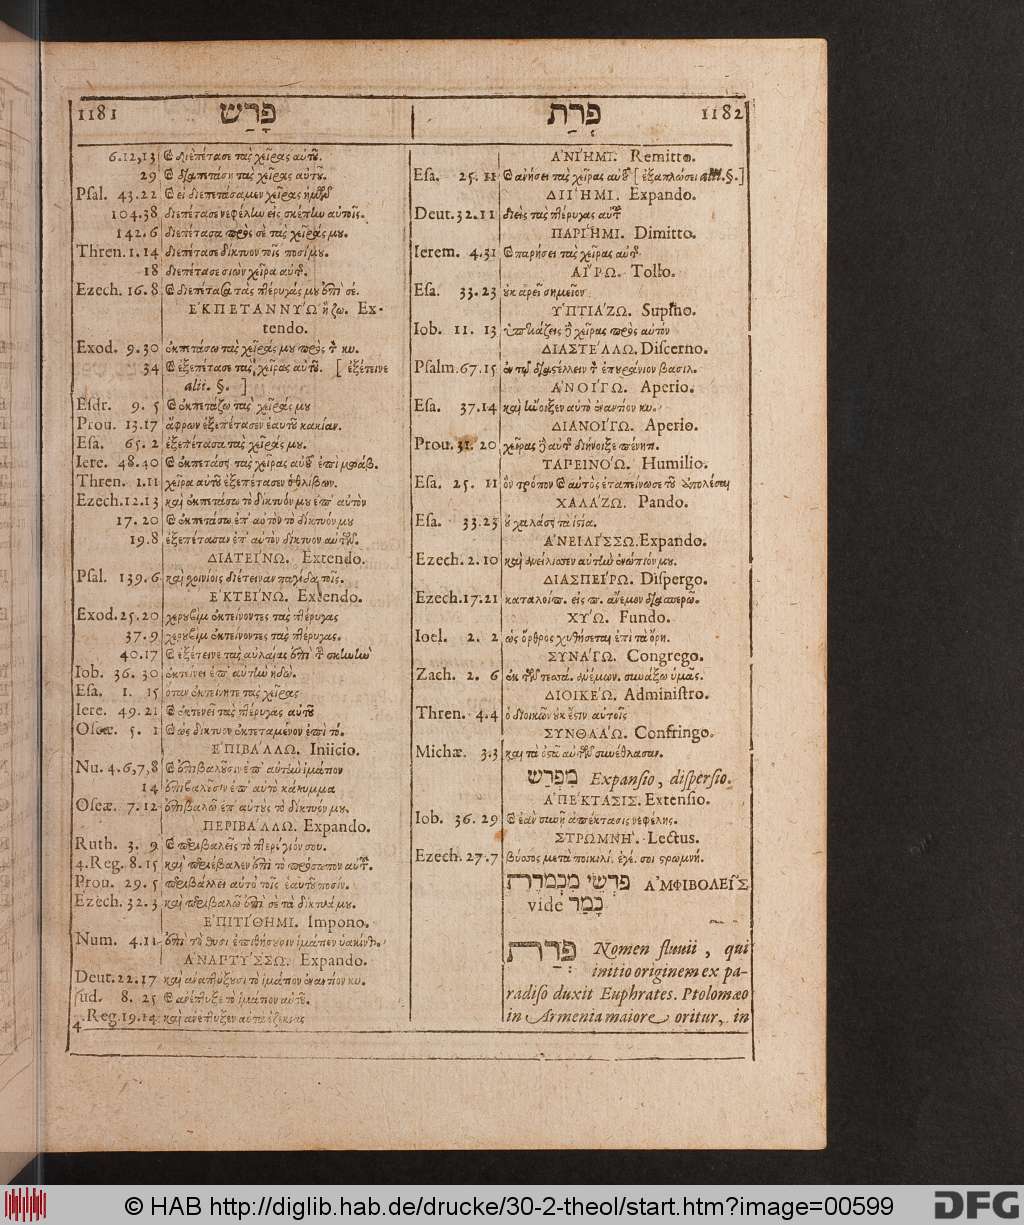 1181 פָּרַשׂ
6.12,13 ϗ διεπέτασε τὰς χεῖρας αὐτοῦ.
29 ϗ διαπετάσῃ τὰς χεῖρας αὐτοῦ.
Psal. 43.22 ϗ εἰ διεπετάσαμεν χεῖρας ἡμῶν
104.38 διεπέτασε νεφέλην εἰς σκέπην αὐτοῖς.
142.6 διεπέτασα πρὸς σὲ τὰς χεῖράς μου.
Thren. 1.14 διεπέτασε δίκτυον τοῖς ποσί μου.
18 διεπέτασε σιων χεῖρα αὐτῆς.
Ezech. 16.8 ϗ διεπέτασα τὰς πτέρυγάς μου ἐπὶ σέ.
ἘΚΠΕΤΑΝΝΎΩ ἢ ζω. Ex-
tendo.
Exod. 9.30 ἐκπετάσω τὰς χεῖράς μου πρὸς τὸν κν.
34 ϗ ἐξεπέτασε τὰς χεῖρας αὐτοῦ. [ ἐξέτεινε
alit. §. ]
Esdr. 9. 5 ϗ ἐκπετάζω τὰς χεῖράς μου
Prou. 13.17 ἄφρων ἐξεπέτασεν ἑαυτοῦ κακίαν.
Esa. 65. 2 ἐξεπέτασα τὰς χεῖράς μου.
Iere. 48.40 ϗ ἐκπετάσῃ τὰς χεῖρας αὐτοῦ ἐπὶ μωάβ.
Thren. 1.11 χεῖρα αὐτοῦ ἐξεπέτασεν ὁ θλίβων.
Ezech.12.13 καὶ ἐκπετάσω τὸ δίκτυόν μου ἐπ' αὐτὸν
17. 20 ϗ ἐκπετάσω ἐπ' αὐτὸν τὸ δίκτυόν μου
19.8 ἐξεπέτασαν ἐπ' αὐτὸν δίκτυον αὐτῶν.
ΔΙΑΤΕΊΝΩ. Extendo.
Psal. 139.6 καὶ σχοινίοις διέτειναν παγίδα τοῖς.
ἘΚΤΕΊΝΩ. Extendo.
Exod.25.20 χερουβὶμ ἐκτείνοντες τὰς πτέρυγας
37.9 χερουβὶμ ἐκτείνοντες τὰς πτέρυγας.
40.17 ϗ ἐξέτεινε τὰς αὐλαίας ἐπὶ τὴν σκηνὴν
Iob. 36. 30 ἐκτείνει ἐπ' αὐτὴν ἠδώ.
Esa. 1. 15 ὅταν ἐκτείνητε τὰς χεῖρας
Iere. 49.21 ϗ ἐκτενεῖ τὰς πτέρυγας αὐτοῦ
Oseæ. 5. 1 ϗ ὡς δίκτυον ἐκτεταμένον ἐπὶ τό.
ἘΠΙΒΆΛΛΩ. Iniicio.
Nu. 4.6,7,8 ϗ ἐπιβαλοῦσιν ἐπ' αὐτὴν ἱμάτιον
14 ἐπιβαλοῦσιν ἐπ' αὐτὸ κάλυμμα
Oseæ. 7.12 ἐπιβαλῶ ἐπ' αὐτοὺς τὸ δίκτυόν μου.
ΠΕΡΙΒΆΛΛΩ. Expando.
Ruth. 3. 9 ϗ περιβαλεῖς τὸ πτερύγιόν σου.
4.Reg. 8.15 καὶ περιέβαλεν ἐπὶ τὸ πρόσωπον αὐτοῦ.
Prou. 29. 5 περιβάλλει αὐτὸ τοῖς ἑαυτοῦ ποσίν.
Ezech. 32. 3 καὶ περιβαλῶ ἐπὶ σὲ τὰ δίκτυά μου.
ἘΠΙΤΊΘΗΜΙ. Impono.
Num. 4.11 ἐπὶ τὸ θυσι ἐπιθήσουσιν ἱμάτιον ὑακίνθι.
ἈΝΑΠΤΎΣΣΩ. Expando.
Deut. 22.17 καὶ ἀναπτύξουσι τὸ ἱμάτιον ἐναντίον κυ.
Iud. 8. 25 ϗ ἀνέπτυξε τὸ ἱμάτιον αὐτοῦ.
4.Reg.19.14 καὶ ἀνέπτυξεν αὐτὰ ἐζεκίας
פְּרָת 1182
ἈΝΊΗΜΙ. Remitto.
Esa. 25. 11 ϗ ἀνήσει τὰς χεῖρας αὐτοῦ [ ἐξαπλώσει alit. §.]
ΔΙΊΗΜΙ. Expando.
Deut.32.11 διεὶς τὰς πτέρυγας αὐτοῦ
ΠΑΡΊΗΜΙ. Dimitto.
Ierem. 4.31 ϗ παρήσει τὰς χεῖρας αὐτῆς
ΑἼΡΩ. Tollo.
Esa. 33.23 οὐκ ἀρεῖ σημεῖον
ὙΠΤΙΆΖΩ. Supino.
Iob. 11. 13 ὑπτιάζεις δὲ χεῖρας πρὸς αὐτὸν
ΔΙΑΣΤΈΛΛΩ. Discerno.
Psalm.67.15 ἐν τῷ διαστέλλειν τὸν ἐπουράνιον βασιλ.
ἈΝΟΊΓΩ. Aperio.
Esa. 37.14 καὶ ἤνοιξεν αὐτὸ ἐναντίον κυ.
ΔΙΑΝΟΊΓΩ. Aperio.
Prou. 31. 20 χεῖρας δὲ αὐτῆς διήνοιξε πένητ.
ΤΑΡΕΙΝΟΏ. Humilio.
Esa. 25. 11 ὃν τρόπον ϗ αὐτὸς ἐταπείνωσε τοῦ ἀπολέσαι
ΧΑΛΆΖΩ. Pando.
Esa. 33.23 οὐ χαλάσῃ τὰ ἱστία.
ἈΝΕΙΛΊΣΣΩ.Expando.
Ezech. 2.10 καὶ ἀνείλισσεν αὐτὴν ἐνώπιόν μου.
ΔΙΑΣΠΕΊΡΩ. Dispergo.
Ezech.17.21 καταλοίπ. εἰς π. ἄνεμον διασπερῶ.
ΧΎΩ. Fundo.
Ioel. 2. 2 ὡς ὄρθρος χυθήσεται ἐπὶ τὰ ὄρη.
ΣΥΝΆΓΩ. Congrego.
Zach. 2. 6 ἐκ τῶν τεσσά. ἀνέμων. συνάξω ὑμᾶς.
ΔΙΟΙΚΈΩ. Administro.
Thren. 4.4 ὁ διοικῶν οὐκ ἔστιν αὐτοῖς
ΣΥΝΘΛΆΩ. Confringo.
Michæ. 3.3 καὶ τὰ ὀστᾶ αὐτῶν συνέθλασαν.
מִפְרָשׂ Expansio, dispersio.
ἈΠΈΚΤΑΣΙΣ. Extensio.
Iob. 36. 29 ϗ ἐὰν συνῇ ἀπέκτασις νεφέλης.
ΣΤΡΩΜΝΉ. Lectus.
Ezech. 27.7 βύσσος μετὰ ποικιλί. ἐγέ. σοι στρωμνή.
פֹּרְשֵׂי מִכְמֹרֶת ἈΜΦΙΒΟΛΕΙ͂Σ
vide כָּמַר
פְּרָת Nomen fluuii, qui
initio originem ex pa-
radiso duxit Euphrates. Ptolomæo
in Armenia maiore oritur, in
© HAB http://diglib.hab.de/drucke/30-2-theol/start.htm?image=00599
DFG